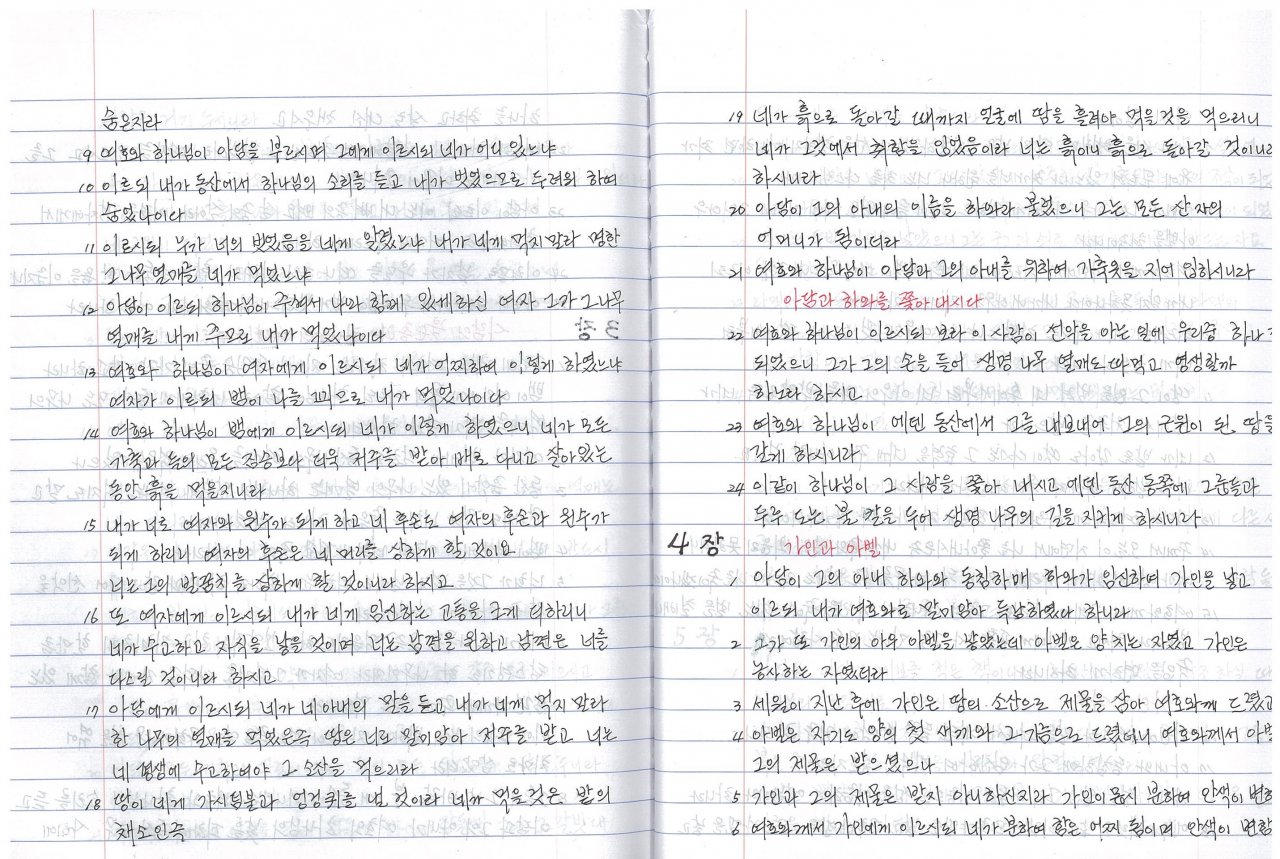 숨은지라
9 여호와 하나님이 아담을 부르시며 그에게 이르시되 네가 어디 있느냐
10 이르되 내가 동산에서 하나님의 소리를 듣고 내가 벗었으므로 두려워 하여
숨었나이다
11 이르시되 누가 너의 벗었음을 네게 알렸느냐 내가 네게 먹지말라 명한
그 나무 열매를 네가 먹었느냐
12 아담이 이르되 하나님이 주셔서 나와 함께 있게하신 여자 그가 그 나무
열매를 내게 주므로 내가 먹었나이다
13 여호와 하나님이 여자에게 이르시되 네가 어찌하여 이렇게 하였느냐
여자가 이르되 뱀이 나를 꾀므로 내가 먹었나이다
14 여호와 하나님이 뱀에게 이르시되 네가 이렇게 하였으니 네가 모든
가축과 들의 모든 짐승보다 더욱 저주를 받아 배로 다니고 살아있는
동안 흙을 먹을지니라
15 내가 너로 여자와 원수가 되게 하고 네 후손도 여자의 후손과 원수가
되게 하리니 여자의 후손은 네 머리를 상하게 할 것이요
너는 그의 발꿈치를 상하게 할 것이니라 하시고
16 또 여자에게 이르시되 내가 네게 임신하는 고통을 크게 더하리니
네가 수고하고 자식을 낳을 것이며 너는 남편을 원하고 남편은 너를
다스릴 것이니라 하시고
17 아담에게 이르시되 네가 네 아내의 말을 듣고 내가 네게 먹지 말라
한 나무의 열매를 먹었은즉 땅은 너로 말미암아 저주를 받고 너는
네 평생에 수고하여야 그 소산을 먹으리라
18 땅이 네게 가시덤불과 엉겅퀴를 낼 것이라 네가 먹을것은 밭의
채소인즉
19 네가 흙으로 돌아갈 때까지 얼굴에 땀을 흘려야 먹을것을 먹으리니
네가 그것에서 취함을 입었음이라 너는 흙이니 흙으로 돌아갈 것이니라
하시니라
20 아담이 그의 아내의 이름을 하와라 불렀으니 그는 모든 산 자의
어머니가 됨이더라
21 여호와 하나님이 아담과 그의 아내를 위하여 가죽옷을 지어 입히시니라
아담과 하와를 쫓아 내시다
22 여호와 하나님이 이르시되 보라 이 사람이 선악을 아는 일에 우리중 하나
되었으니 그가 그의 손을 들어 생명 나무 열매도 따먹고 영생할까
하노라 하시고
23 여호와 하나님이 에덴 동산에서 그를 내보내어 그의 근원이 된 땅을
갈게 하시니라
24 이같이 하나님이 그 사람을 쫓아 내시고 에덴 동산 동쪽에 그룹들과
두루 도는 불 칼을 두어 생명 나무의 길을 지키게 하시니라
4장 가인과 아벨
1 아담이 그의 아내 하와와 동침하매 하와가 임신하여 가인을 낳고
이르되 내가 여호와로 말미암아 득남하였다 하니라
2 그가 또 가인의 아우 아벨을 낳았는데 아벨은 양 치는 자였고 가인은
농사하는 자였더라
3 세월이 지난 후에 가인은 땅의 소산으로 제물을 삼아 여호와께 드렸고
4 아벨은 자기도 양의 첫 새끼와 그 기름으로 드렸더니 여호와께서 아벨
그의 제물은 받으셨으나
5 가인과 그의 제물은 받지 아니하신지라 가인이 몹시 분하여 안색이 변하
6 여호와께서 가인에게 이르시되 네가 분하여 함은 어찌 됨이며 안색이 변함